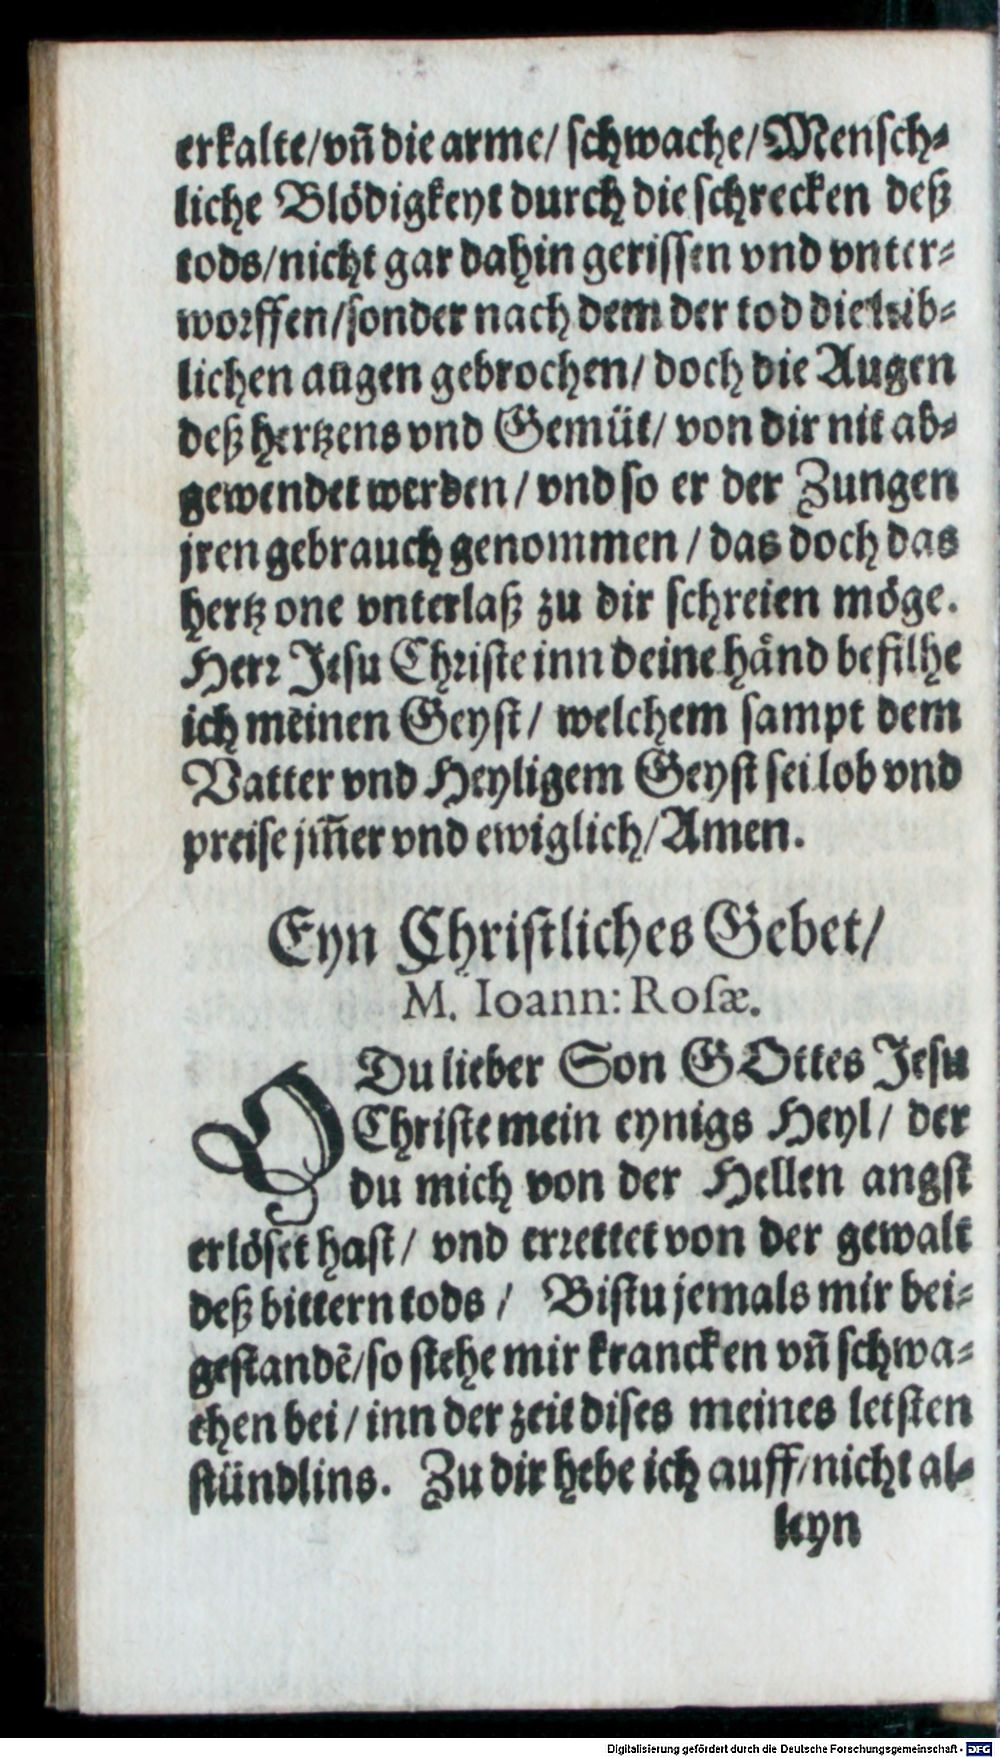 erkalte/vn̄ die arme/ schwache/Mensch⸗
liche Blödigkeyt durch die schrecken deß
tods/nicht gar dahin gerissen vnd vnter⸗
worffen/sonder nach dem der tod die leib⸗
lichen augen gebrochen/ doch die Augen
deß hertzens vnd Gemüt/ von dir nit ab⸗
gewendet werden/ vnd so er der Zungen
jren gebrauch genommen / das doch das
hertz one vnterlaß zu dir schreien möge.
Herr Jesu Christe inn deine händ befilhe
ich meinen Geyst/ welchem sampt dem
Vatter vnd Heyligem Geyst sei lob vnd
preise jm̄er vnd ewiglich/Amen.
Eyn Christliches Gebet/
M. Ioann: Rosæ.
O Du lieber Son GOttes Jesu
Christe mein eynigs Heyl/ der
du mich von der Hellen angst
erlöset hast/ vnd errettet von der gewalt
deß bittern tods / Bistu jemals mir bei⸗
gestandē/so stehe mir krancken vn̄ schwa⸗
chen bei/ inn der zeit dises meines letsten
stündlins. Zu dir hebe ich auff/nicht al⸗
leyn
Digitalisierung gefördert durch die Deutsche Forschungsgemeinschaft - DFG